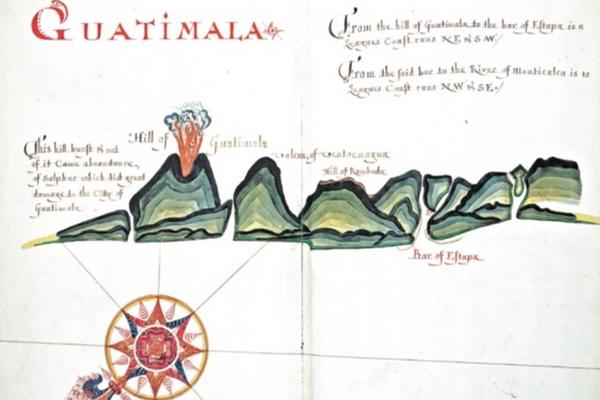 GUATIMALA
From the hill of Guatimala to the bar of Estapa is 8
Leagues Coast runs NE & SW
From the said bar to the River of Monticalco is 10
Leagues Coast runs NW & SE
This hill burst & out
of it Came abondance
of Sulphur which did great
damage to the City of
Guatimala
Hill of Guatimala
of
Hill of
Bar of Estapa